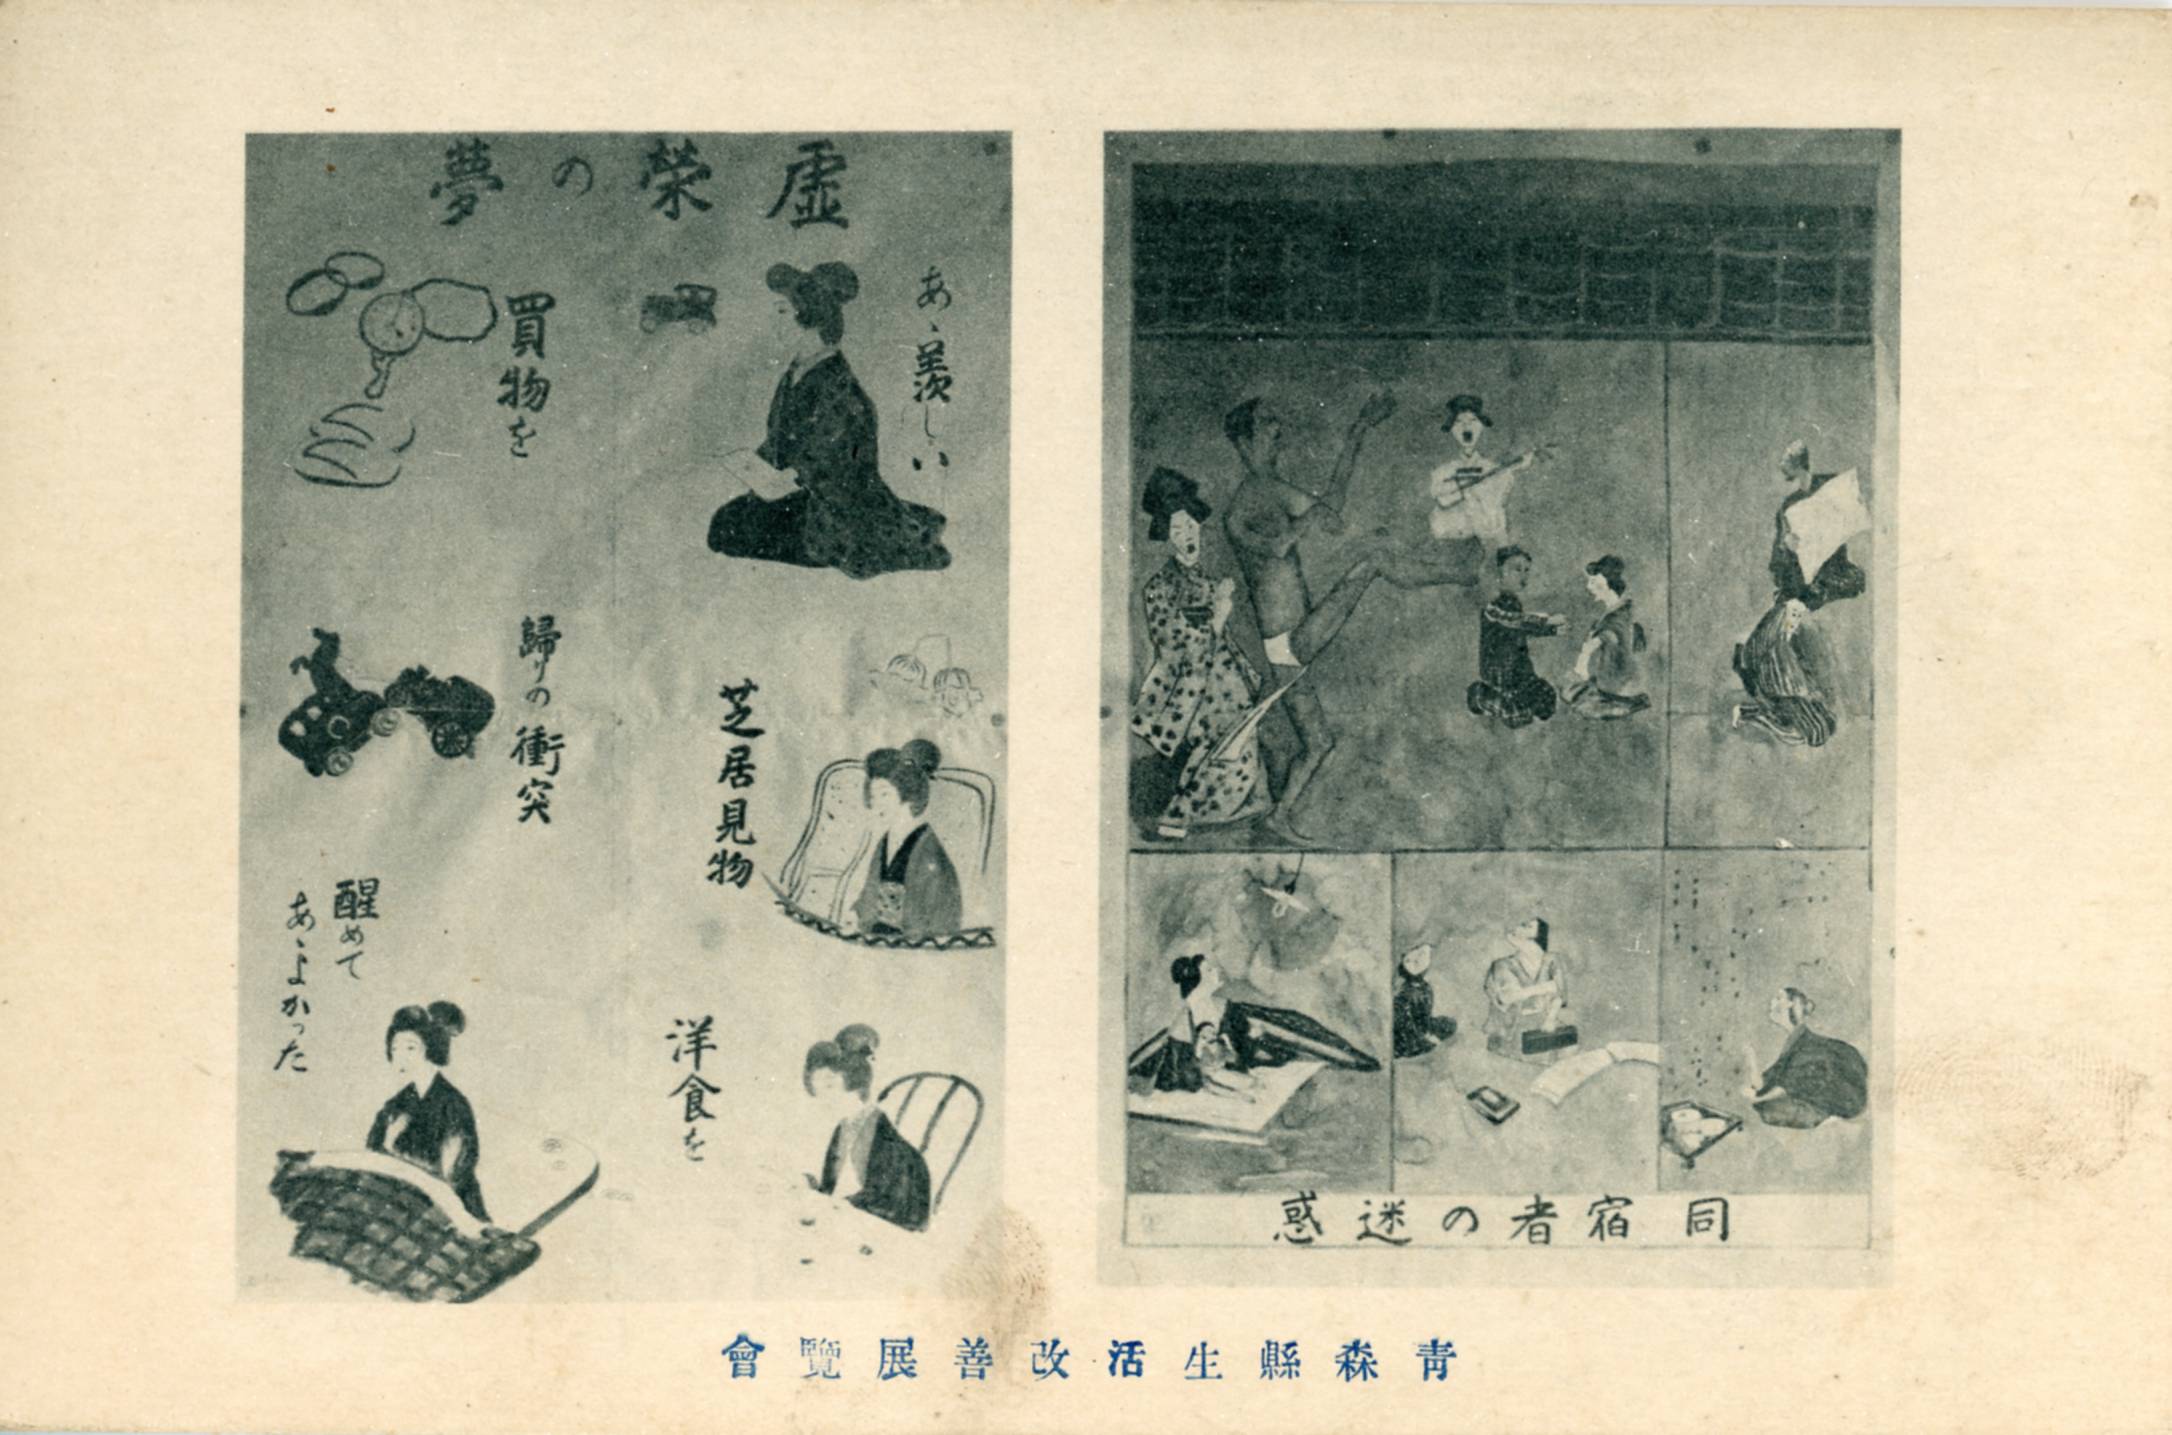 虚栄の夢
あゝ羨しい
買物を
芝居見物
歸りの衝突
洋食を
醒めて
あゝよかった
同宿者の迷惑
青森縣生活改善展覽會